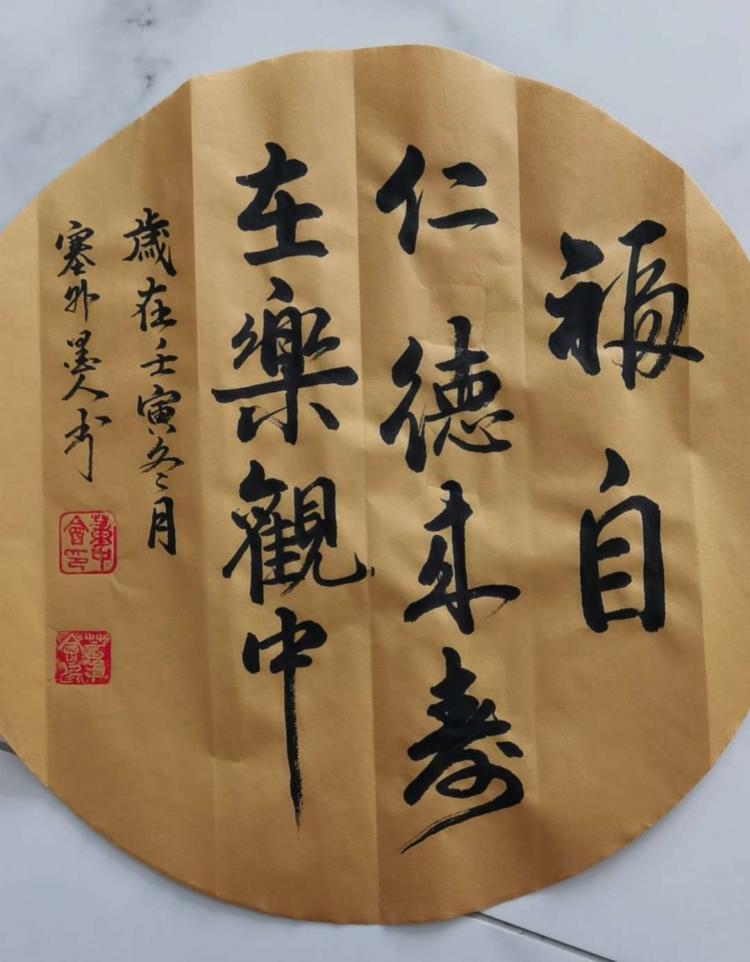 福自
仁德来寿
在樂觀中
歲在壬寅冬月
塞外墨人书